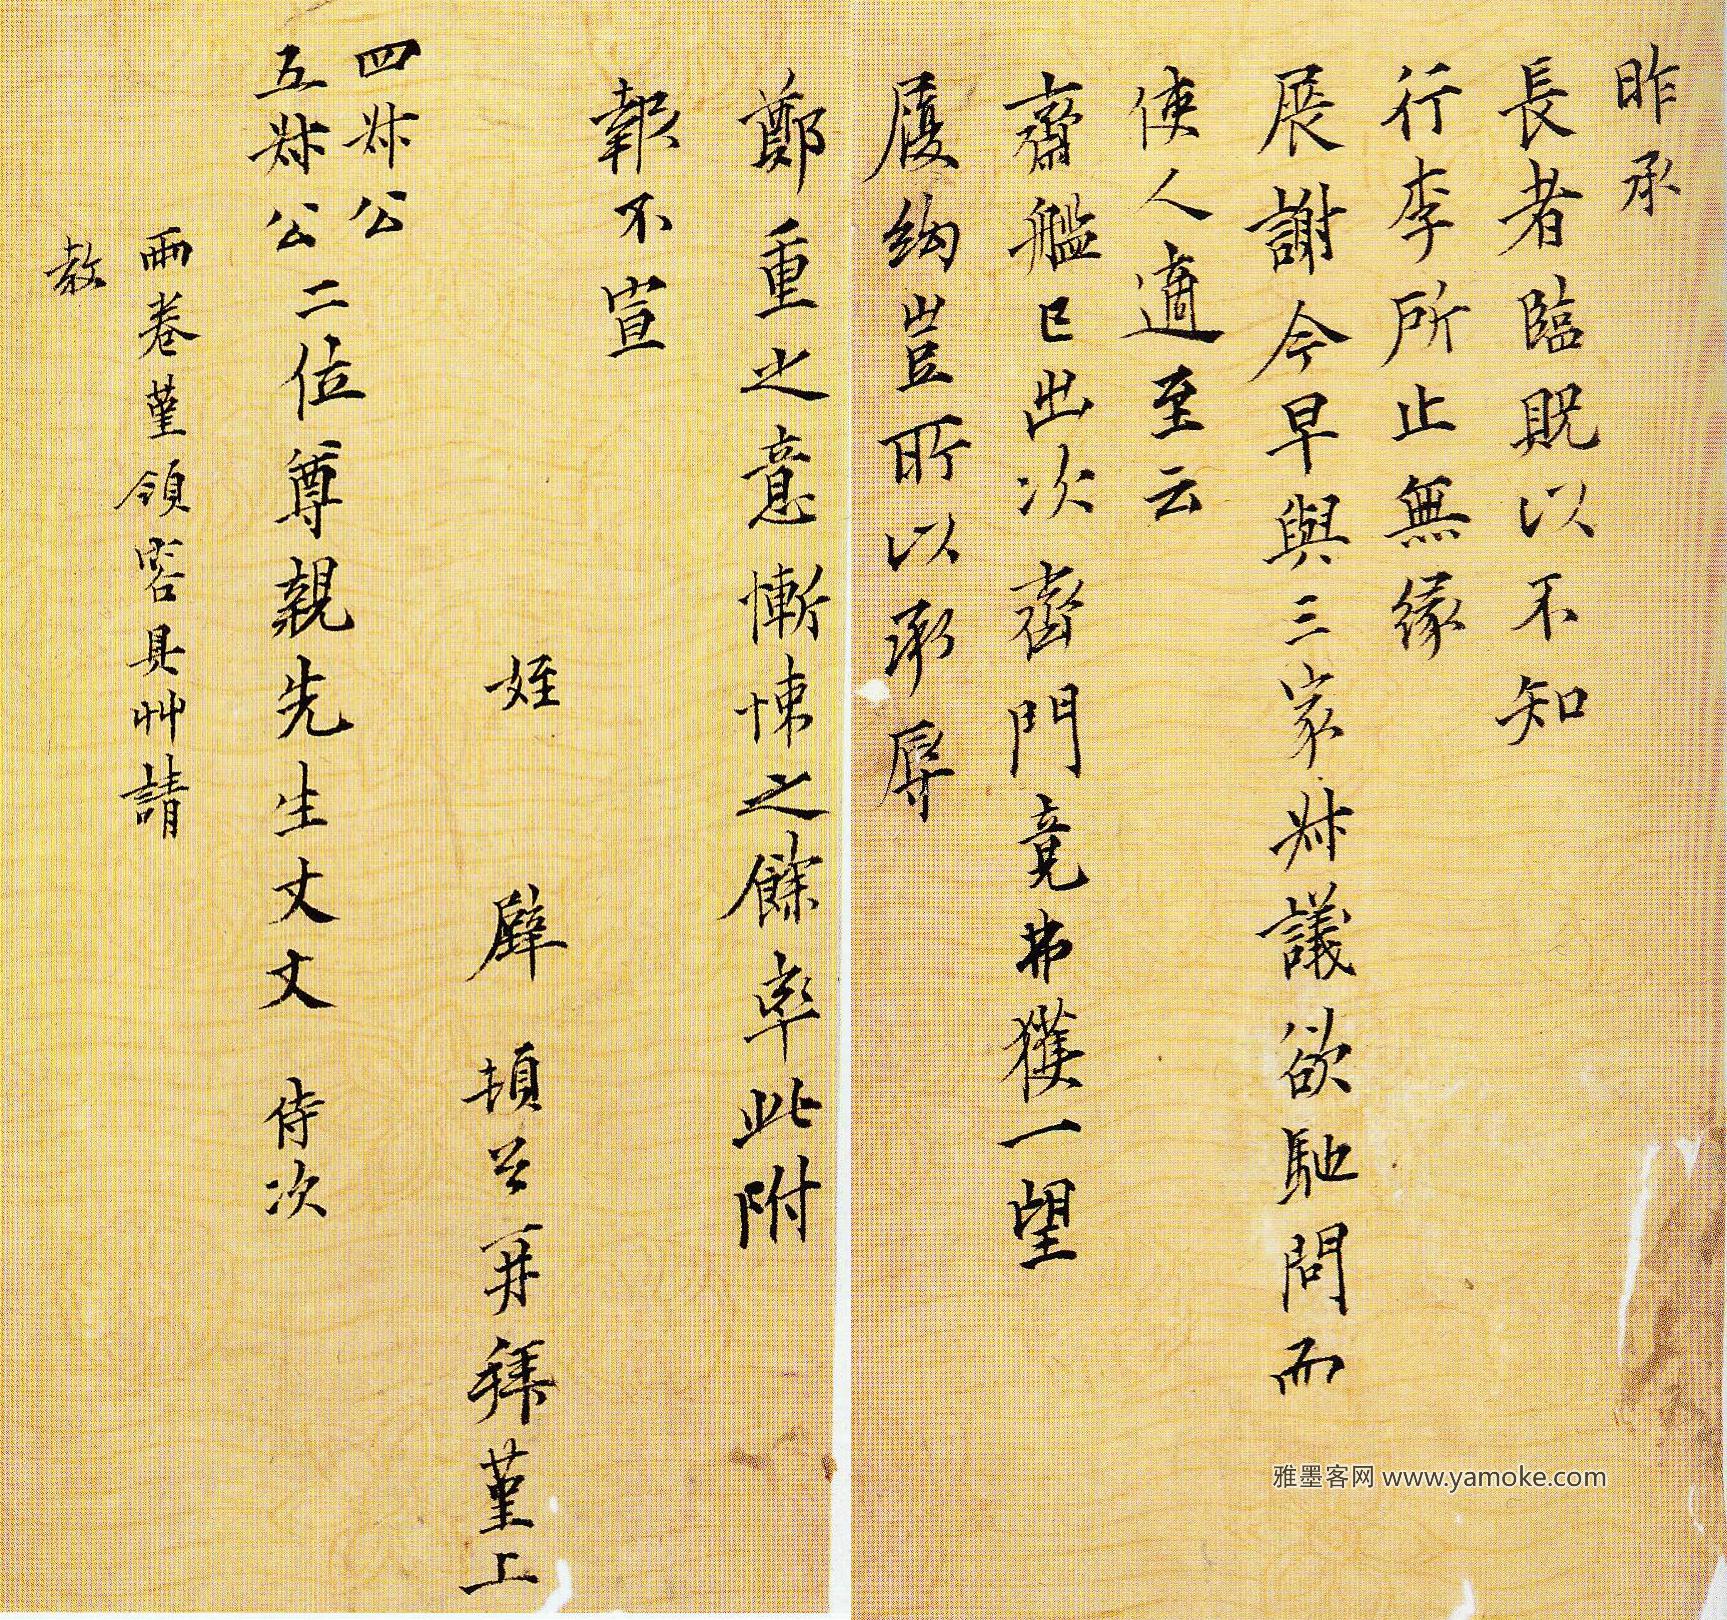 昨承
長者臨貺以不知
行李所止無緣
展謝今早與三家叔議欲馳問而
使人適至云
齋艦已出次齊門竟弗獲一望
履絇豈所以承厚
鄭重之意慚悚之餘率此附
報不宣
姪 璧 頓首再拜謹上
四叔公
五叔公二位尊親先生丈丈 侍次
兩卷謹領容具艸請
教
雅墨客网 www.yamoke.com